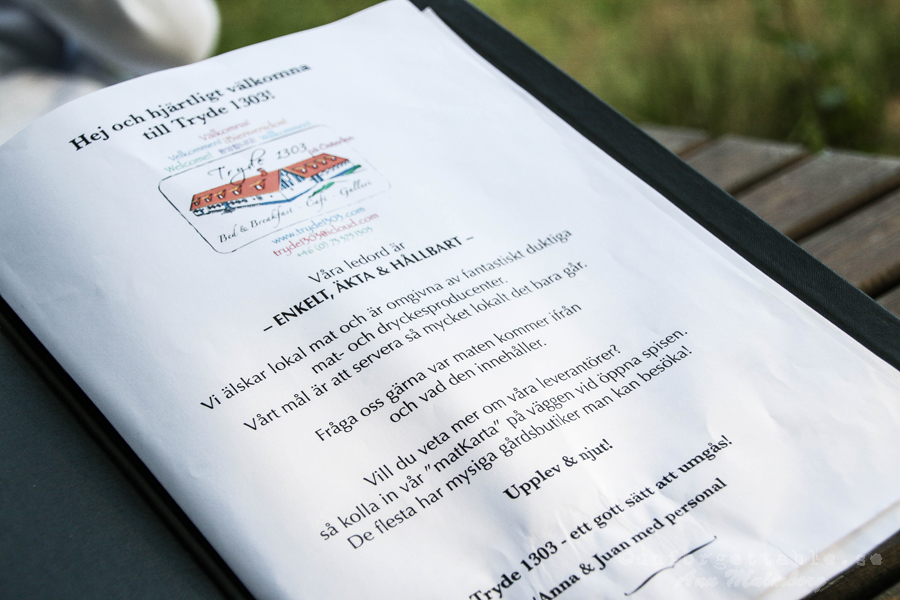 Hej och hjärtligt välkomna
till Tryde 1303!
Välkomna!
Welcome!
Tryde 1303 på Österlen
Bed & Breakfast Café Galleri
www.tryde1303.com
tryde1303@icloud.com
Våra ledord är
– ENKELT, ÄKTA & HÅLLBART –
Vi älskar lokal mat och är omgivna av fantastiskt duktiga
mat- och dryckesproducenter.
Vårt mål är att servera så mycket lokalt det bara går.
Fråga oss gärna var maten kommer ifrån
och vad den innehåller.
Vill du veta mer om våra leverantörer?
så kolla in vår ”matKarta” på väggen vid öppna spisen.
De flesta har mysiga gårdsbutiker man kan besöka!
Upplev & njut!
Tryde 1303 - ett gott sätt att umgås!
Anna & Juan med personal